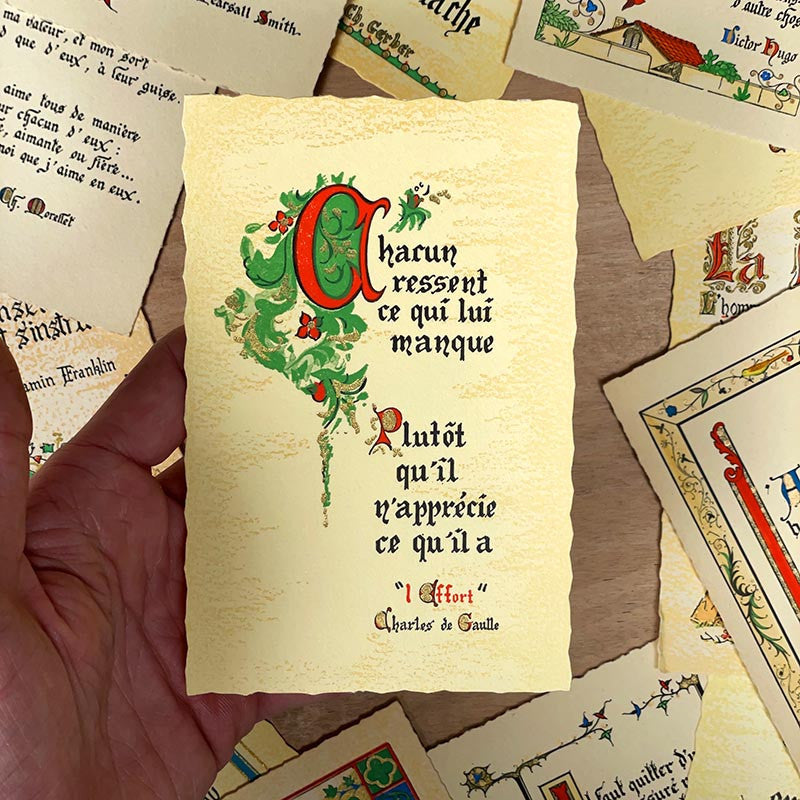 Chacun
ressent
ce qui lui
manque
Plutôt
qu'il
n'apprécie
ce qu'il a
"l Effort"
Charles de Gaulle
earsall Smith
ma valeur, et mon sort
que d'eux, à leur guise.
aime tous de manière
chacun d'eux :
aimante ou fière...
moi que j'aime en eux.
Ch. Morellet
ache
Ch. Gerber
autre chos
Victor Hugo
sinstr
amin Franklin
La
L'hom
faut quitter d'u